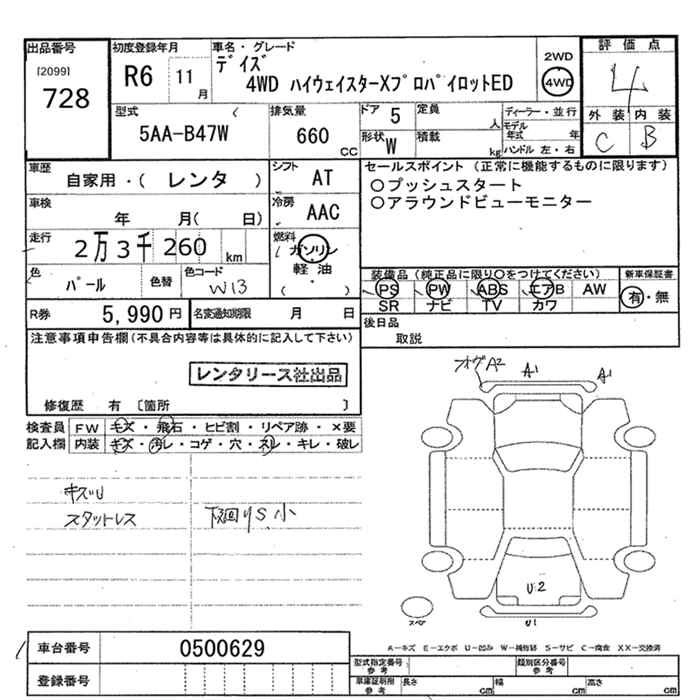 出品番号
[2099]
728
初度登録年月
R6 11月
車名・グレード
デイズ
4WD ハイウェイスターXプロパイロットED
2WD
4WD
評価点
4
外装 内装
C B
型式
5AA-B47W
排気量
660 CC
ドア 5
形状 W
定員 人
積載 kg
ディーラー・並行
モデル年式 年
ハンドル 左・右
車歴
自家用・( レンタ )
シフト AT
車検
年 月( 日)
冷房 AAC
走行
2万3千260 km
燃料
ガソリン
軽油
( )
色 パール
色替
色コード W13
セールスポイント (正常に機能するものに限ります)
○プッシュスタート
○アラウンドビューモニター
装備品 (純正品に限り○をつけてください)
PS PW ABS エアB AW
SR ナビ TV カワ
新車保証書
有・無
R券 5,990円
名変通知期限 月 日
後日品
取説
注意事項申告欄(不具合内容等は具体的に記入して下さい)
レンタリース社出品
修復歴 有 〔箇所 〕
検査員記入欄
FW キズ・飛石・ヒビ割・リペア跡・×要
内装 キズ・汚レ・コゲ・穴・スレ・キレ・破レ
キズU
スタットレス
下廻りS小
A2
A1
A1
U2
U1
スペア
A-キズ E-エクボ U-凹み W-補修跡 S-サビ C-腐食 XX-交換済
車台番号 0500629
登録番号
型式指定番号 参考
類別区分番号 参考
車庫証明用 参考
長さ cm 幅 cm 高さ cm